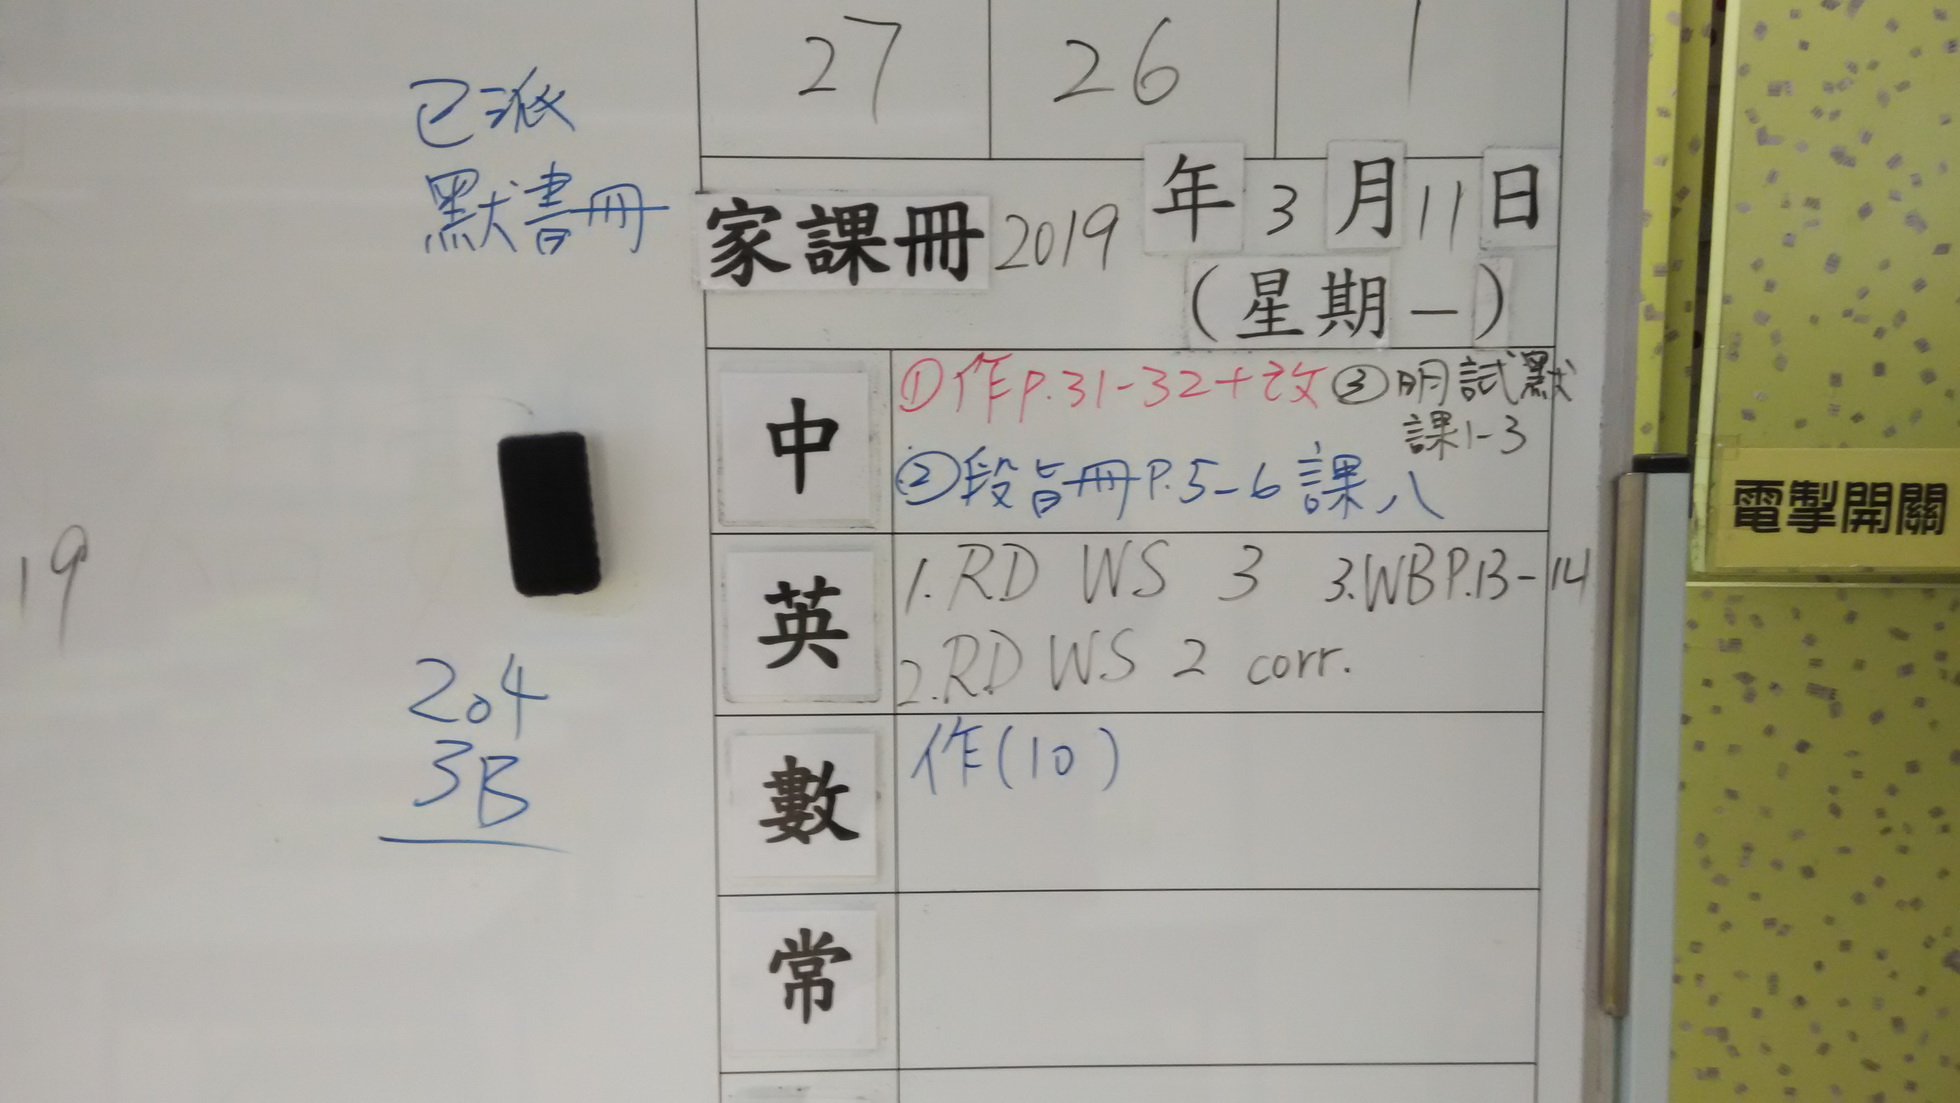 27 26 1
已派
默書冊
家課冊 2019 年 3 月 11 日
(星期一)
中 ①作P.31-32+改 ③明試默
課1-3
②段旨冊P.5-6 課八
英 1.RD WS 3 3.WBP.13-14
2.RD WS 2 corr.
數 作(10)
常
19
204
3B
電掣開關